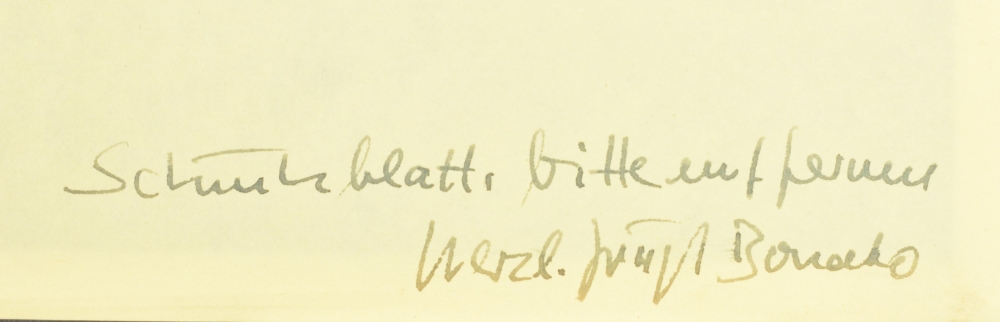 Schutzblatt, bitte entfernen
Herzl. grüßt Bonato